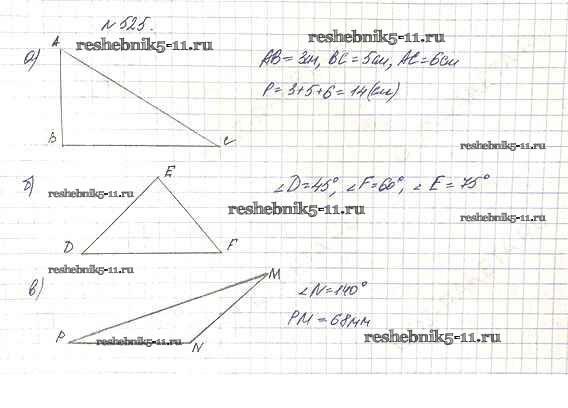 №525.
reshebnik5-11.ru
reshebnik5-11.ru
а)
A
B
C
AB = 3см, BC = 5см, AC = 6см
P = 3+5+6 = 14 (см)
reshebnik5-11.ru
б)
E
D
F
reshebnik5-11.ru
∠D = 45°, ∠F = 60°, ∠E = 75°
reshebnik5-11.ru
reshebnik5-11.ru
reshebnik5-11.ru
в)
M
P
N
reshebnik5-11.ru
∠N = 140°
PM = 68мм
reshebnik5-11.ru